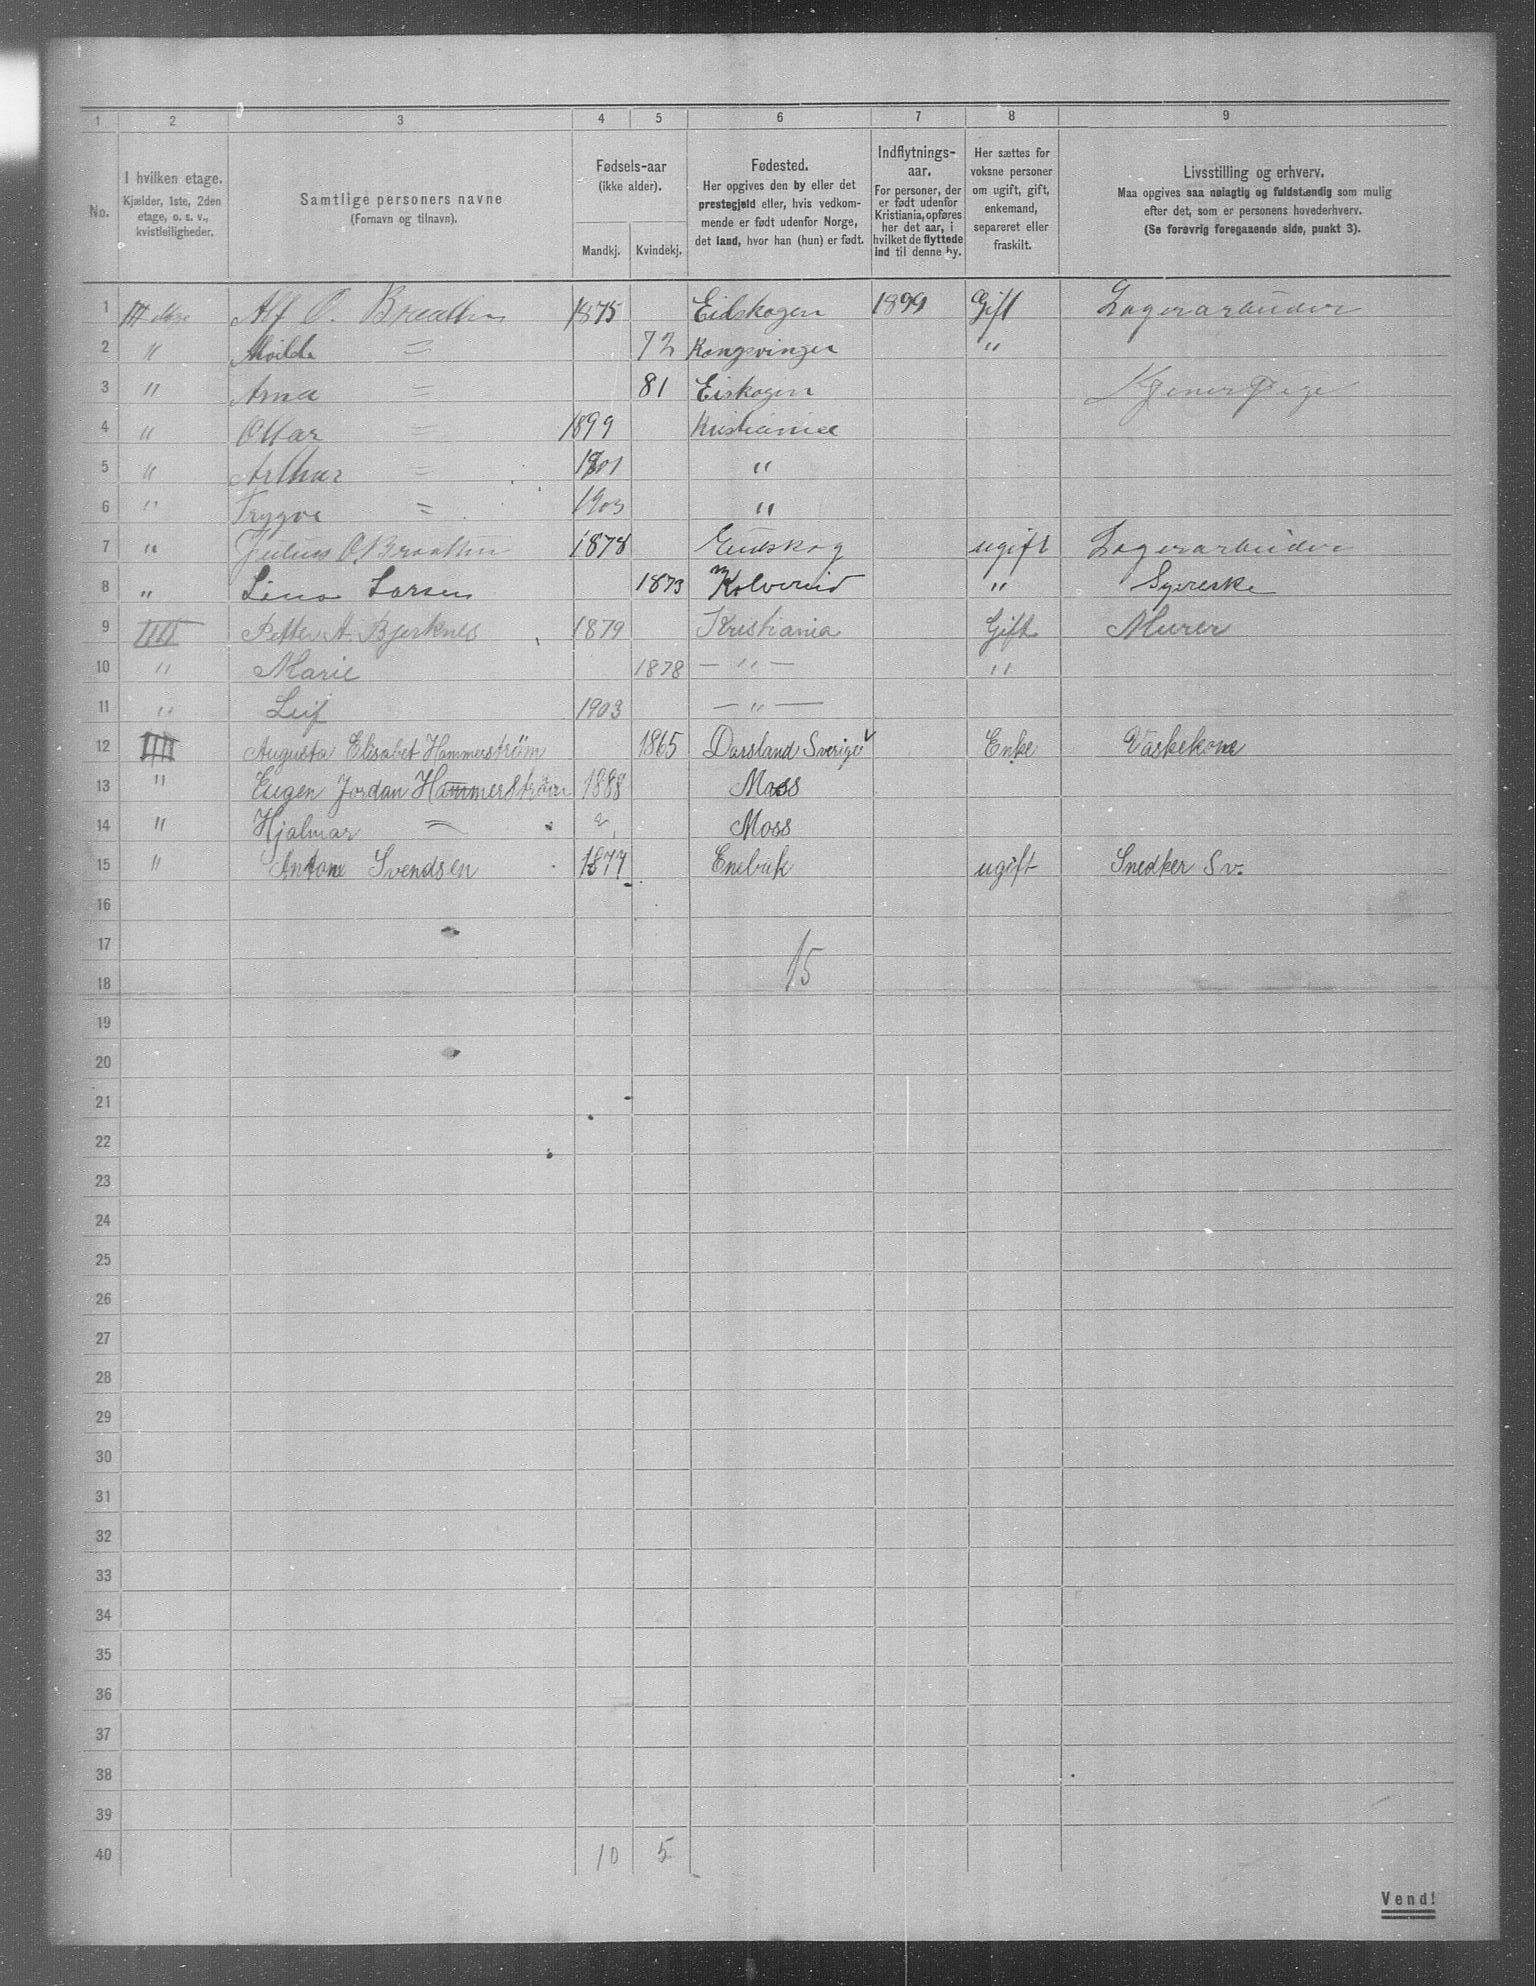 1 2 3 4 5 6 7 8 9
No.
I hvilken etage.
Kjælder, 1ste, 2den
etage, o. s. v.,
kvistleiligheder.
Samtlige personers navne
(Fornavn og tilnavn).
Fødsels-aar
(ikke alder).
Mandkj. Kvindekj.
Fødested.
Her opgives den by eller det
prestegjeld eller, hvis vedkom-
mende er født udenfor Norge,
det land, hvor han (hun) er født.
Indflytnings-
aar.
For personer, der
er født udenfor
Kristiania, opføres
her det aar, i
hvilket de flyttede
ind til denne by.
Her sættes for
voksne personer
om ugift, gift,
enkemand,
separeret eller
fraskilt.
Livsstilling og erhverv.
Maa opgives saa nøiagtig og fuldstændig som mulig
efter det, som er personens hovederhverv.
(Se forøvrig foregaaende side, punkt 3).
1 III etage Alf O. Braathen 1875 Eidskogen 1899 Gift Lagerarbeider
2 " = 72 Kongsvinger "
3 " Anna = 81 Eiskogen
4 " Ottar = 1899 Kristiania
5 " Arthur = 1901 "
6 " Trygve = 1903 "
7 " Julius O. Braathen 1878 Eidskog ugift Lagerarbeider
8 " Lina Larsen 1873 Kolvereid " Syerske
9 IIII Petter A. Bjerknes 1879 Kristiania Gift Murer
10 " Marie 1878 — " — "
11 " Leif 1903 — " —
12 IIII Augusta Elisabet Hammerstrøm 1865 Darsland Sverige Enke Vaskekone
13 " Eugen Jordan Hammerstrøm 1888 Moss
14 " Hjalmar = Moss
15 " Antone Svendsen 1877 Enebak ugift Snedker Sv.
16
17
15
18
19
20
21
22
23
24
25
26
27
28
29
30
31
32
33
34
35
36
37
38
39
40 10 5
Vend!